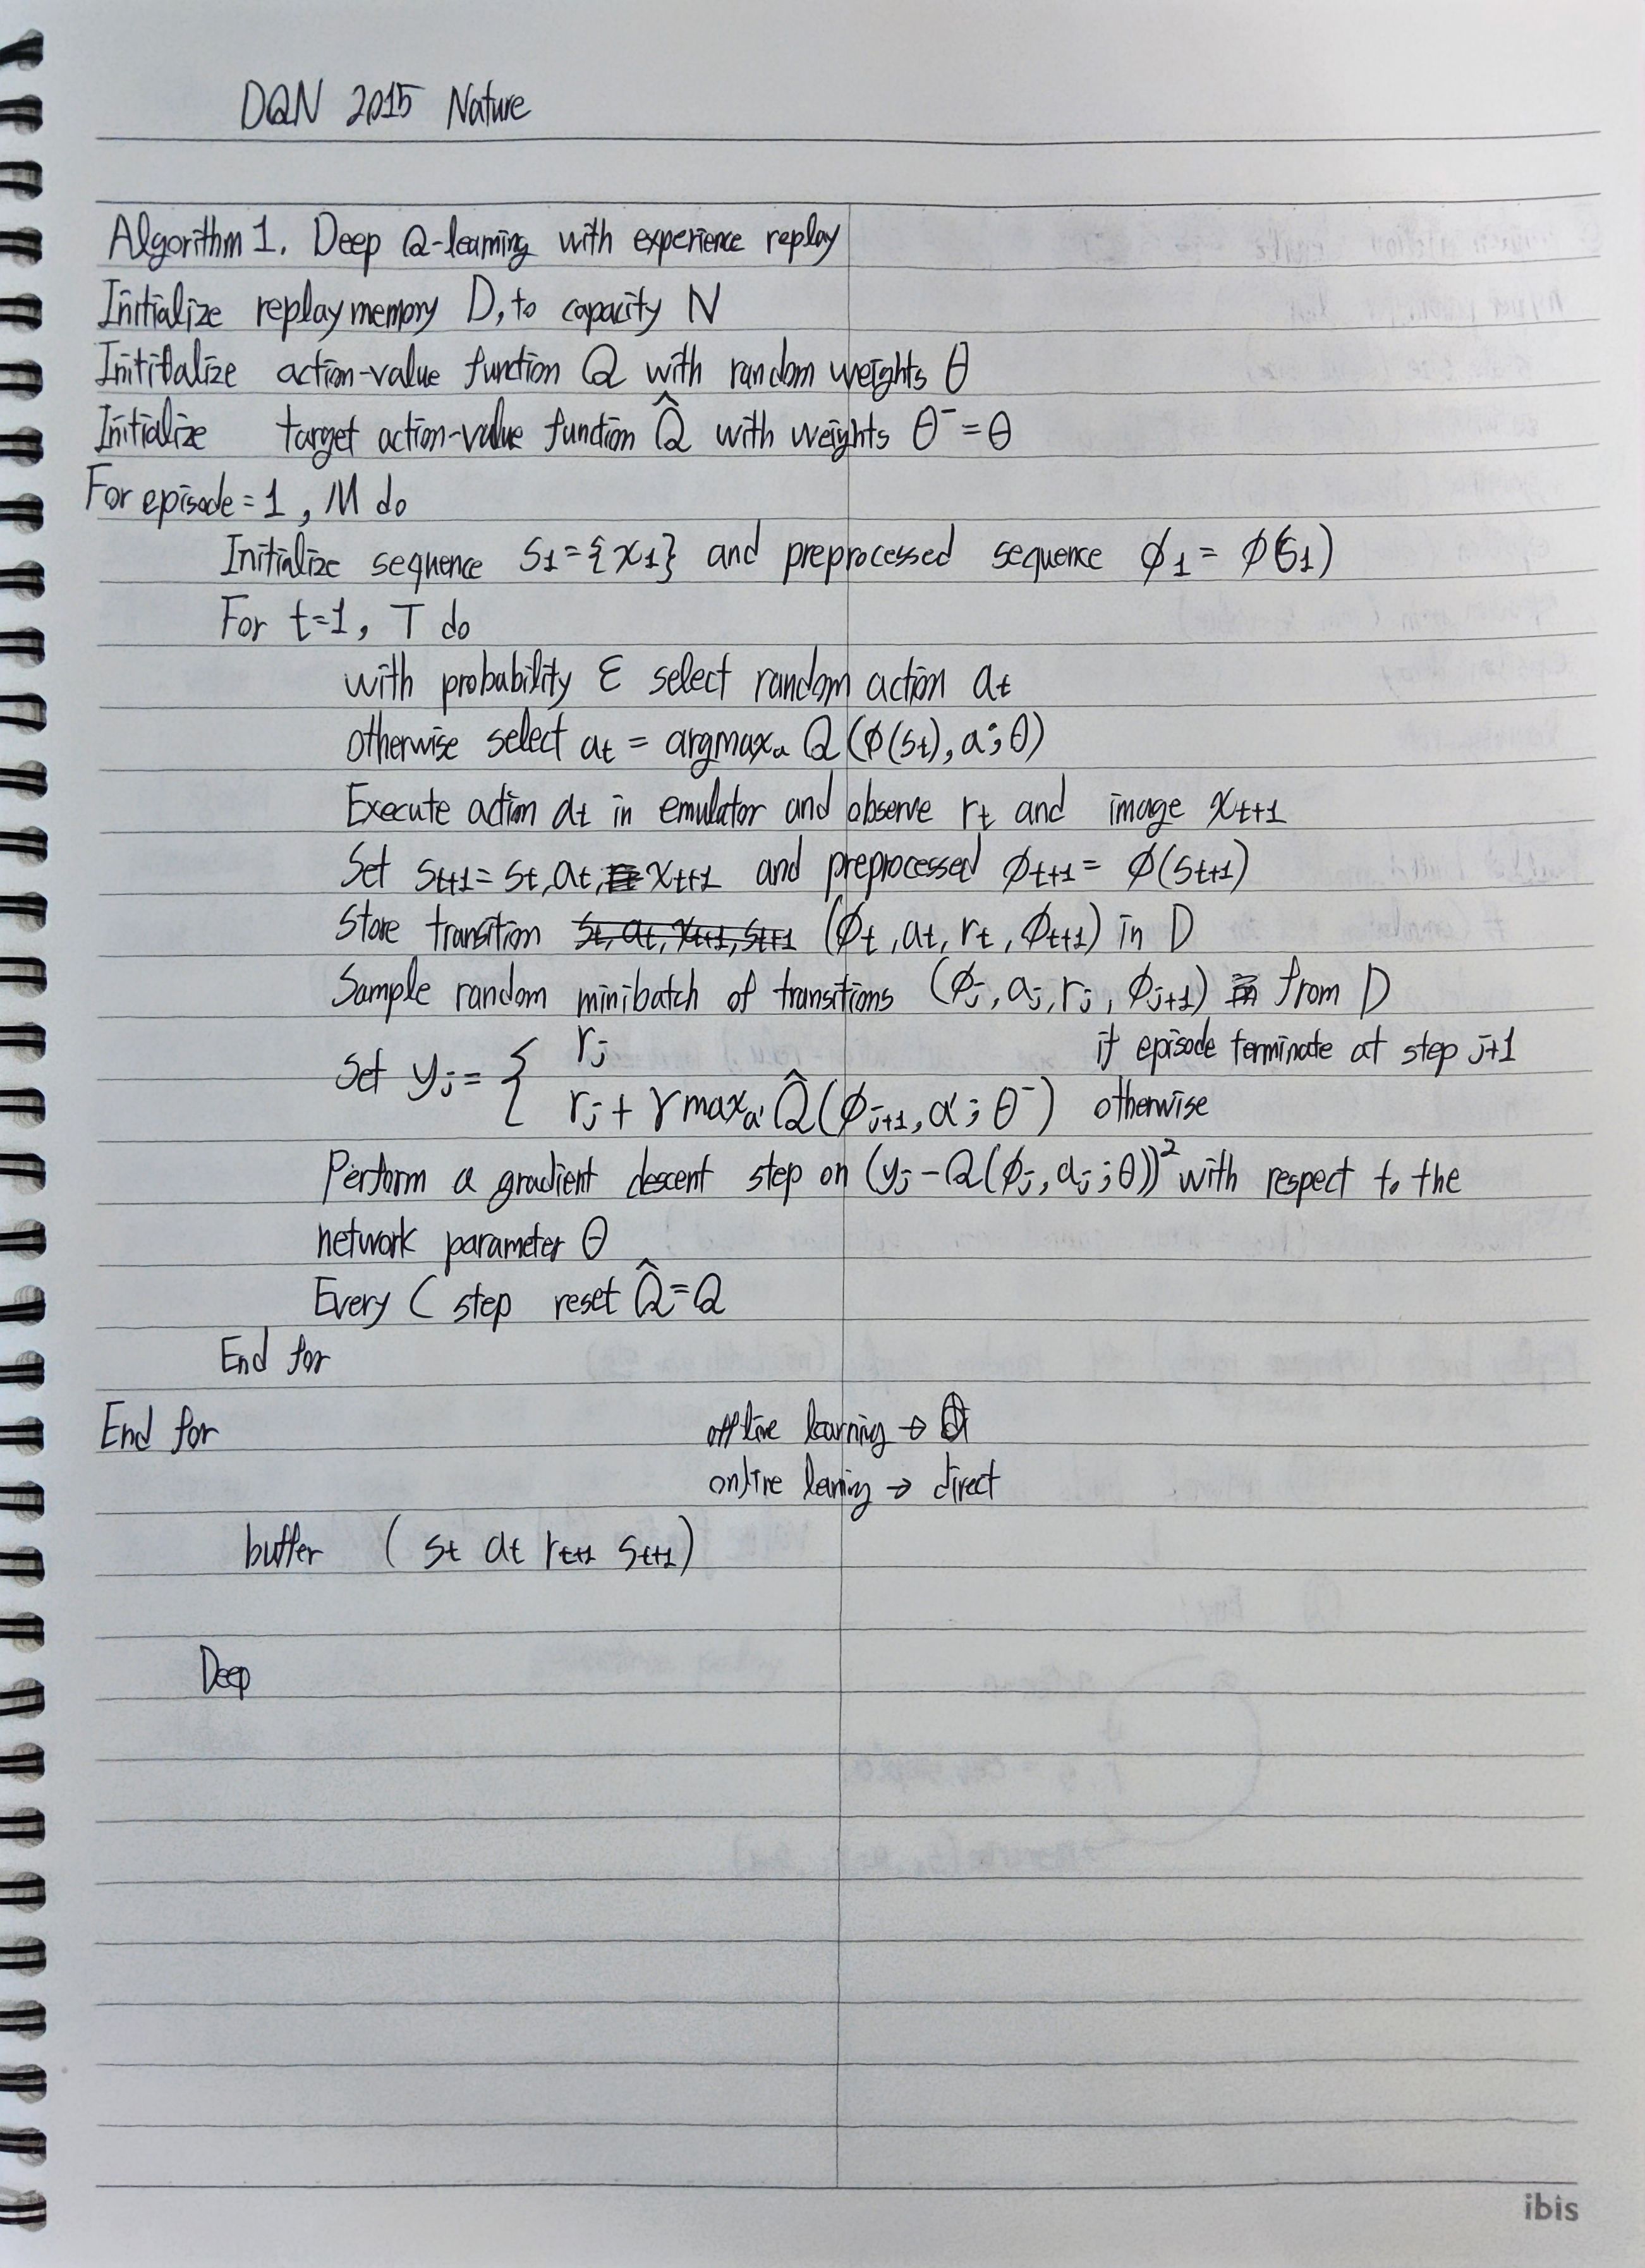 DQN 2015 Nature
Algorithm 1. Deep Q-learning with experience replay
Initialize replay memory D, to capacity N
Inititalize action-value function Q with random weights θ
Initialize target action-value function Q̂ with weights θ⁻ = θ
For episode = 1, M do
Initialize sequence s₁ = {x₁} and preprocessed sequence ϕ₁ = ϕ(s₁)
For t=1, T do
with probability ε select random action aₜ
otherwise select aₜ = argmaxₐ Q (ϕ(sₜ), a; θ)
Execute action aₜ in emulator and observe rₜ and image xₜ₊₁
Set sₜ₊₁ = sₜ, aₜ, xₜ₊₁ and preprocessed ϕₜ₊₁ = ϕ(sₜ₊₁)
Store transition sₜ, aₜ, xₜ₊₁, sₜ₊₁ (ϕₜ, aₜ, rₜ, ϕₜ₊₁) in D
Sample random minibatch of transitions (ϕⱼ, aⱼ, rⱼ, ϕⱼ₊₁) in from D
Set yⱼ = { rⱼ if episode terminate at step j+1
rⱼ + γ maxₐ' Q̂(ϕⱼ₊₁, a'; θ⁻) otherwise
Perform a gradient descent step on (yⱼ - Q(ϕⱼ, aⱼ; θ))² with respect to the
network parameter θ
Every C step reset Q̂ = Q
End for
End for
offline learning →
online larning → direct
buffer (sₜ aₜ rₜ₊₁ sₜ₊₁)
Deep
ibis